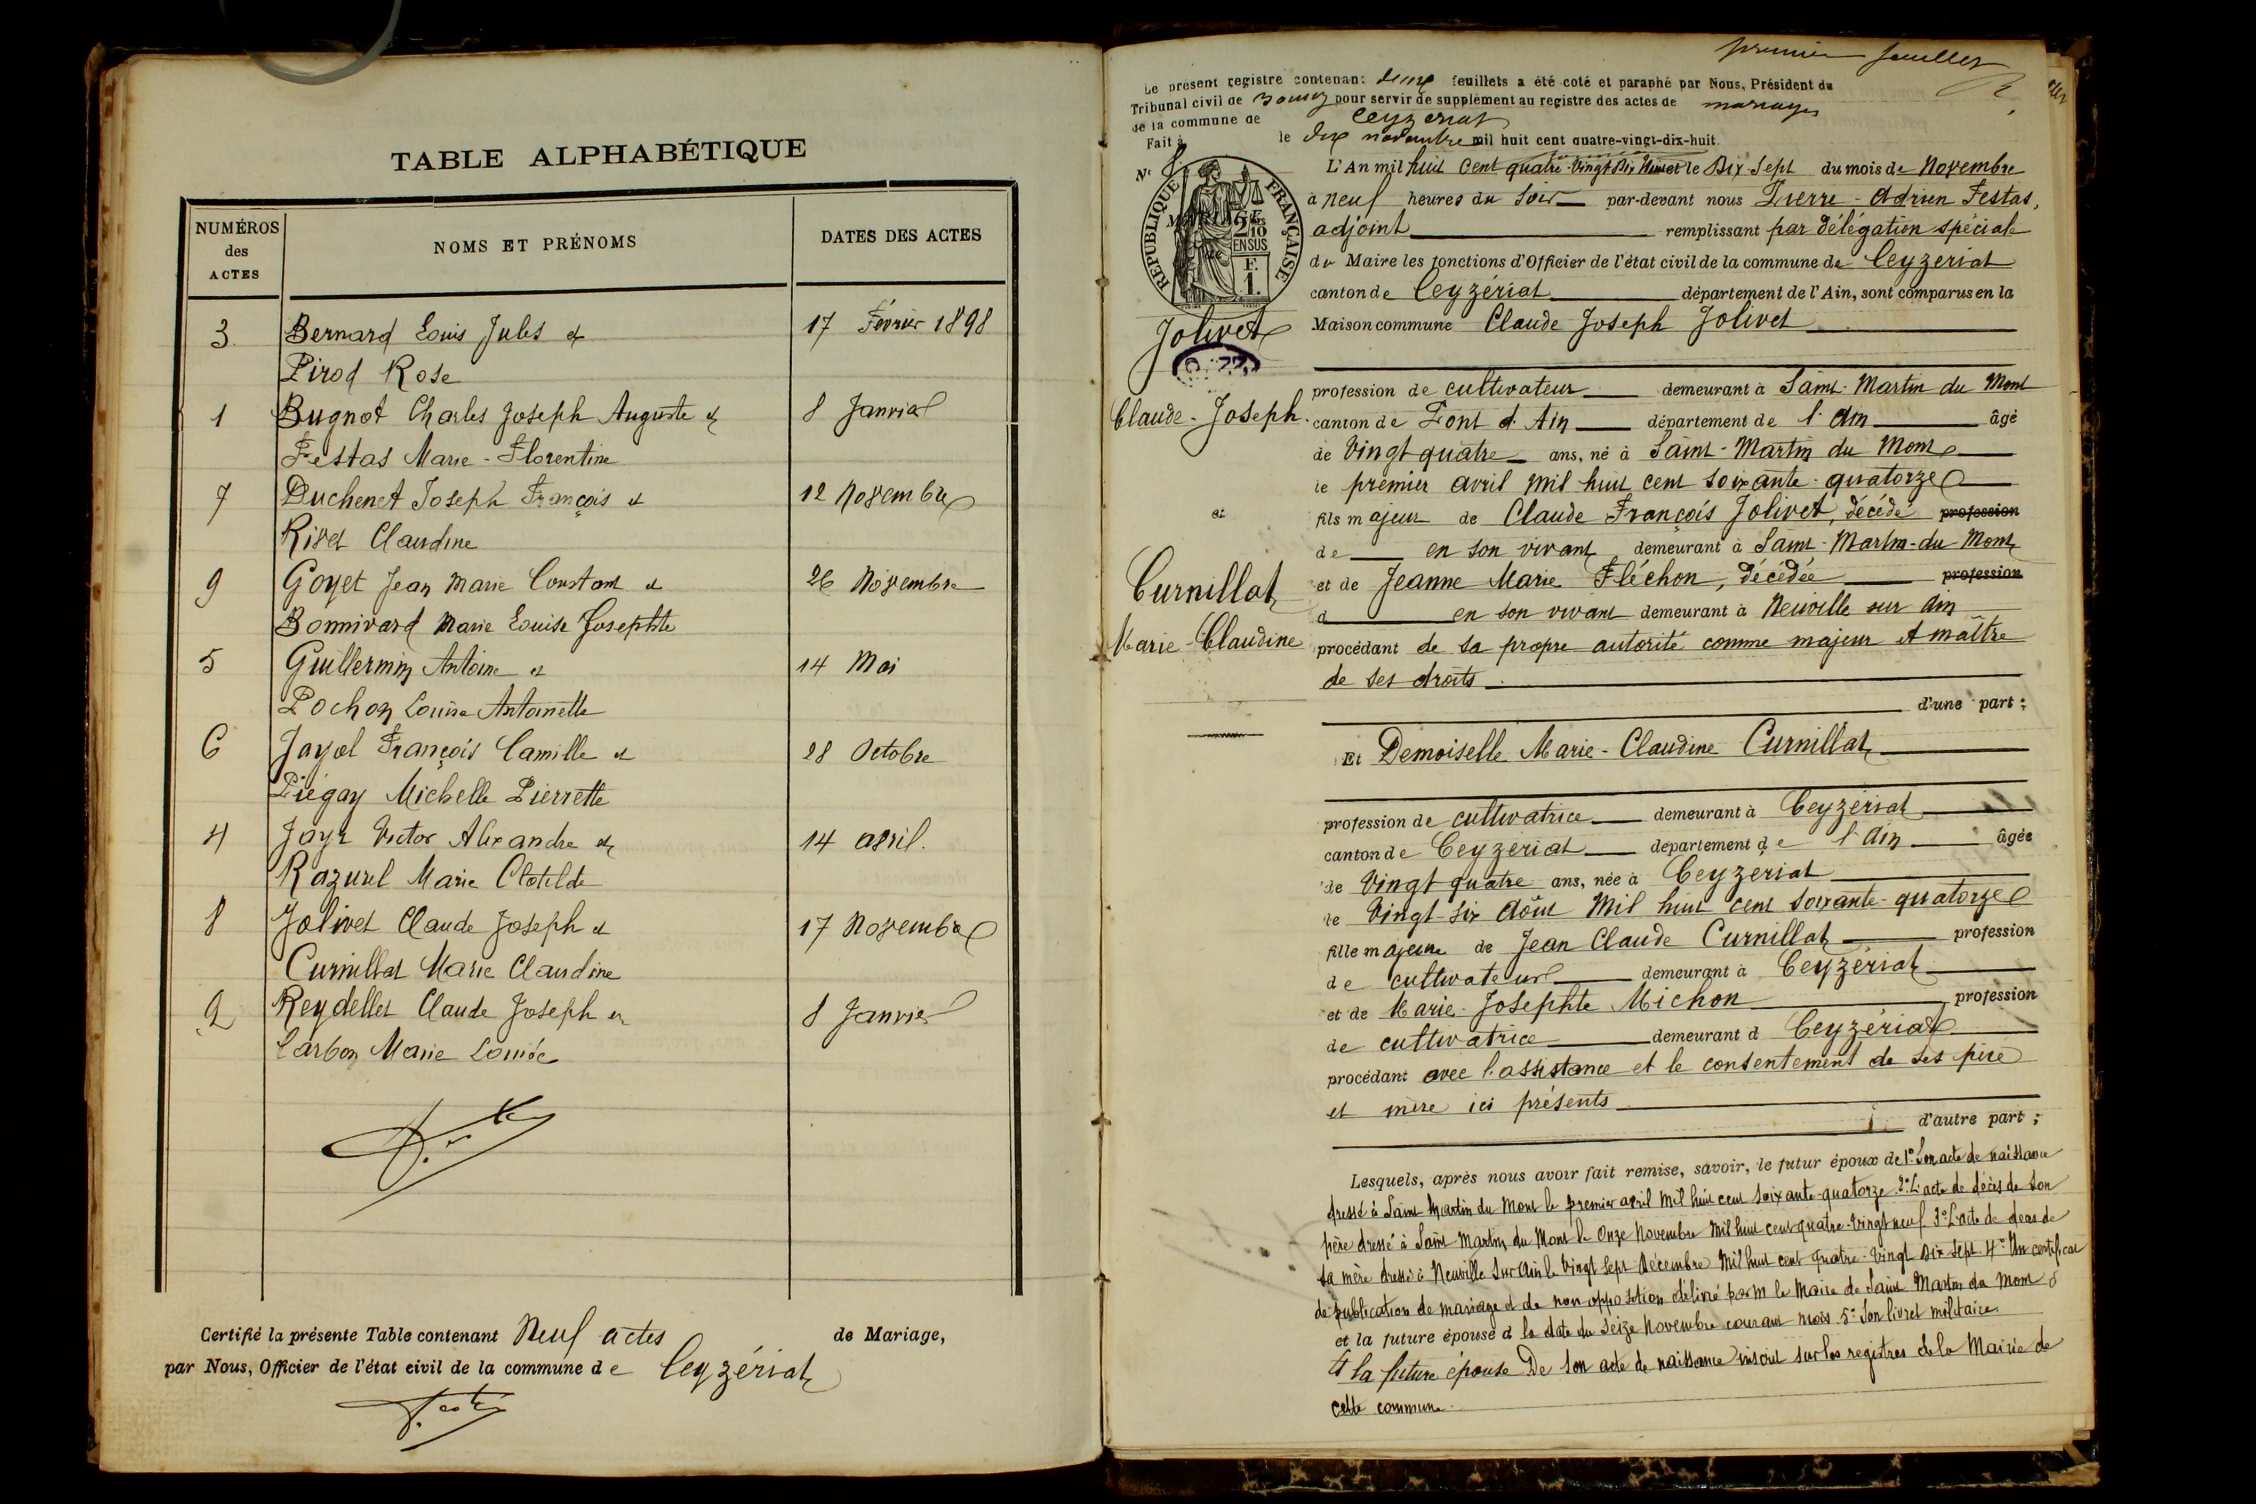 TABLE ALPHABÉTIQUE
NUMÉROS des ACTES
NOMS ET PRÉNOMS
DATES DES ACTES
3 Bernard Louis Jules et 17 Février 1898
Pirod Rose
1 Bugnot Charles Joseph Auguste et 8 Janvier
Festas Marie-Florentine
7 Duchenet Joseph François et 12 Novembre
Rivet Claudine
9 Goyet Jean Marie Constant et 26 Novembre
Bonnivard Marie Louise Josephte
5 Guillermin Antoine et 14 Mai
Pochon Louise Antoinette
6 Jayol François Camille et 28 Octobre
Piégay Michelle Pierrette
4 Jayr Victor Alexandre et 14 avril.
Razurel Marie Clotilde
8 Jolivet Claude Joseph et 17 Novembre
Curnillat Marie Claudine
2 Reydellet Claude Joseph et 8 Janvier
Carbon Marie Louise
Certifié la présente Table contenant Neuf actes de Mariage,
par Nous, Officier de l'état civil de la commune de Ceyzériat
premier feuillet
Le présent registre contenant deux feuillets a été coté et paraphé par Nous, Président du
Tribunal civil de Bourg pour servir de supplément au registre des actes de mariages
de la commune de Ceyzériat
Fait à le dix novembre mil huit cent quatre-vingt-dix-huit.
No 8
REPUBLIQUE FRANÇAISE
2/10 EN SUS
F. 1.
Jolivet
Claude-Joseph.
et
Curnillat
Marie-Claudine
L'An mil huit cent quatre-Vingt Dix Huit et le Dix-Sept du mois de Novembre
à neuf heures du Soir par-devant nous Pierre-Adrien Festas,
adjoint remplissant par délégation spéciale
du Maire les fonctions d'Officier de l'état civil de la commune de Ceyzériat
canton de Ceyzériat département de l'Ain, sont comparus en la
Maison commune Claude Joseph Jolivet
profession de cultivateur demeurant à Saint-Martin du Mont
canton de Pont d'Ain département de l'Ain âgé
de Vingt quatre ans, né à Saint-Martin du Mont
le premier avril mil huit cent soixante-quatorze
fils majeur de Claude François Jolivet, décédé profession
de en son vivant demeurant à Saint-Martin-du Mont
et de Jeanne Marie Fléchon, décédée profession
d en son vivant demeurant à Neuville sur Ain
procédant de sa propre autorité comme majeur et maître
de ses droits
d'une part;
Et Demoiselle Marie-Claudine Curnillat
profession de cultivatrice demeurant à Ceyzériat
canton de Ceyzériat département de l'Ain âgée
de Vingt quatre ans, née à Ceyzériat
le Vingt-six Août Mil huit cent soixante-quatorze
fille majeure de Jean Claude Curnillat profession
de cultivateur demeurant à Ceyzériat
et de Marie-Josephte Michon profession
de cultivatrice demeurant à Ceyzériat
procédant avec l'assistance et le consentement de ses père
et mère ici présents
d'autre part;
Lesquels, après nous avoir fait remise, savoir, le futur époux de 1° Son acte de naissance
dressé à Saint Martin du Mont le premier avril Mil huit cent soixante-quatorze 2° L'acte de décès de son
père dressé à Saint Martin du Mont le Onze Novembre Mil huit cent quatre-vingt neuf 3° L'acte de décès de
sa mère dressé à Neuville sur Ain le Vingt Sept Décembre Mil huit cent quatre-Vingt Dix Sept 4° Un certificat
de publication de mariage et de non opposition délivré par M le Maire de Saint Martin du Mont
et la future épouse à la date du Seize Novembre courant mois 5° Son livret militaire
Et la future épouse De son acte de naissance inscrit sur les registres de la Mairie de
cette commune.